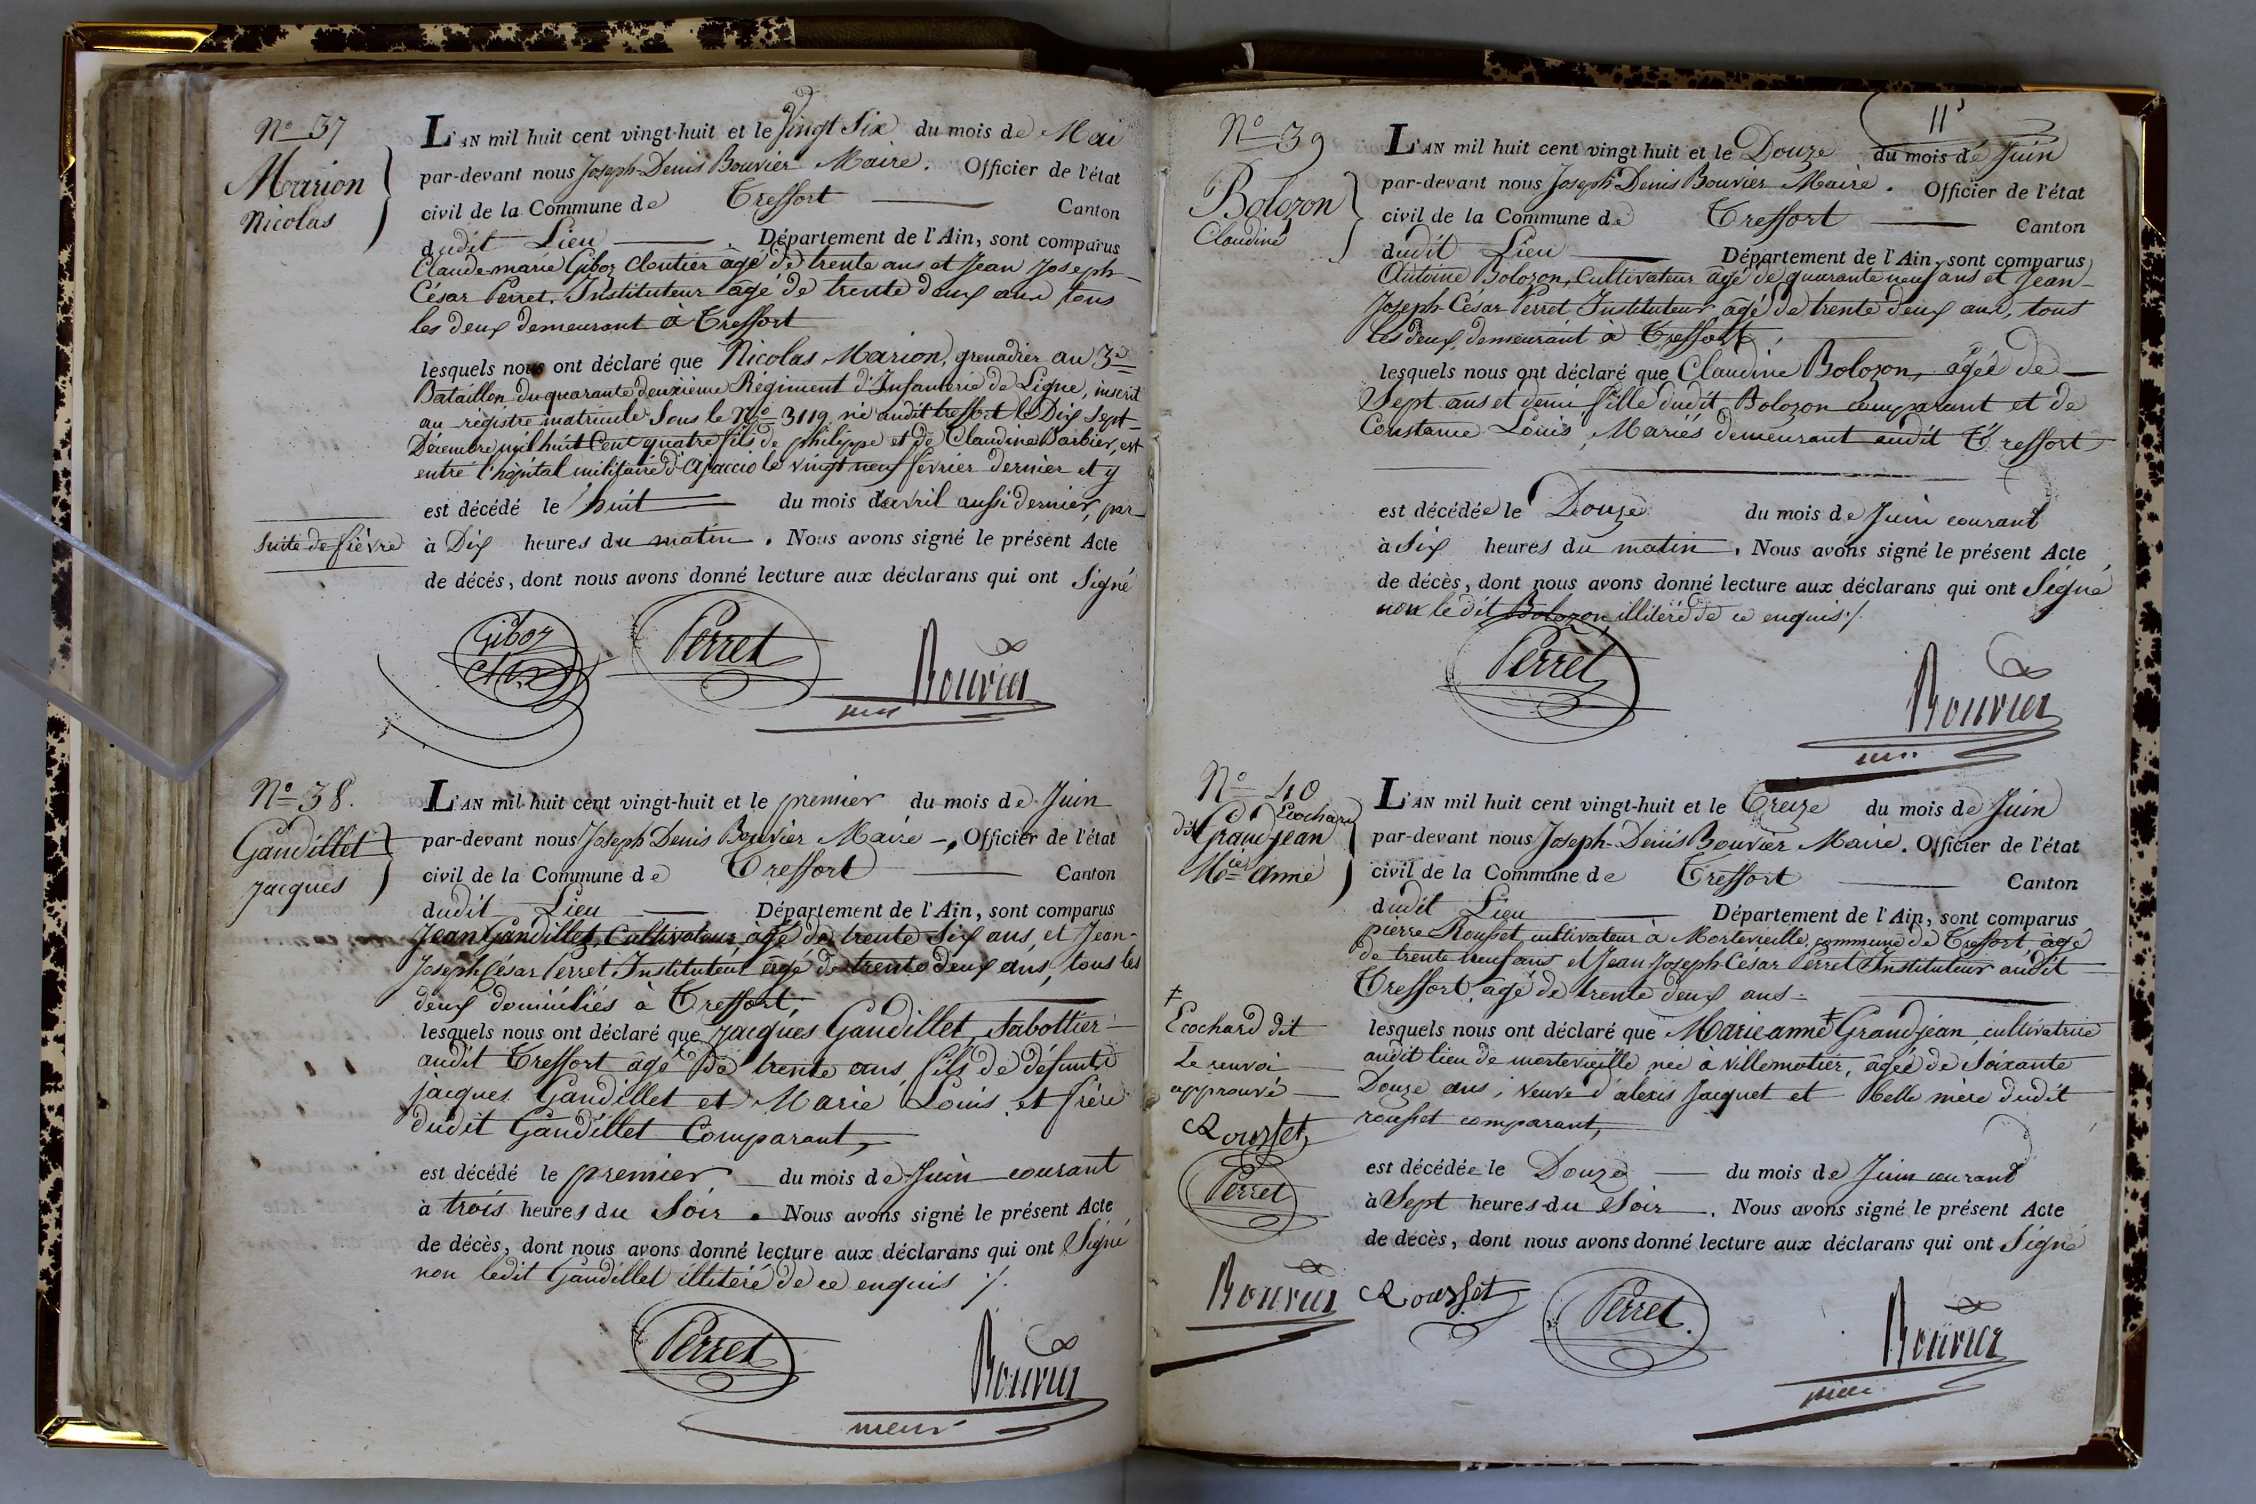 Nº 37
Marion
Nicolas
L'AN mil huit cent vingt-huit et le Vingt Six du mois de Mai
par-devant nous Joseph-Denis Bouvier Maire. Officier de l'état
civil de la Commune de Treffort Canton
dudit Lieu Département de l'Ain, sont comparus
Claude-marie Giboz Cloutier âgé de trente ans et Jean Joseph
César Perret, Instituteur âgé de trente deux ans tous
les deux demeurant à Treffort
lesquels nous ont déclaré que Nicolas Marion, grenadier au 3e
Bataillon du quarante deuxième Régiment d'Infanterie de Ligne, inscrit
au registre matricule sous le Nº 3119 né audit treffort le Dix Sept
Décembre mil huit Cent quatre fils de philippe et de Claudine Barbier, est
entré l'hôpital militaire d'ajaccio le vingt neuf février dernier et y
est décédé le huit du mois d'avril aussi dernier, par
suite de fièvre
à Dix heures du matin. Nous avons signé le présent Acte
de décés, dont nous avons donné lecture aux déclarans qui ont Signé
Giboz
Perret
Bouvier
Nº 38.
Gaudillet
jacques
L'AN mil huit cent vingt-huit et le premier du mois de Juin
par-devant nous Joseph Denis Bouvier Maire -, Officier de l'état
civil de la Commune de Treffort Canton
dudit Lieu Département de l'Ain, sont comparus
Jean Gaudillet, Cultivateur âgé de trente Six ans, et Jean-
Joseph César Perret Instituteur âgé de trente deux ans, tous les
deux domiciliés à Treffort,
lesquels nous ont déclaré que jacques Gaudillet, Sabottier
audit Treffort âgé De trente ans, fils de défunts
jacques Gaudillet et Marie Louis et frère
dudit Gaudillet Comparant,
est décédé le premier du mois de Juin courant
à trois heures du Soir. Nous avons signé le présent Acte
de décès, dont nous avons donné lecture aux déclarans qui ont Signé
non ledit Gaudillet illitéré de ce enquis ./.
Perret
Bouvier
maire
11
Nº 39
Bolozon
Claudine
L'AN mil huit cent vingt huit et le Douze du mois de Juin
par-devant nous Joseph Denis Bouvier Maire. Officier de l'état
civil de la Commune de Treffort Canton
dudit Lieu Département de l'Ain, sont comparus
Antoine Bolozon, Cultivateur âgé de quarante neuf ans et Jean-
Joseph César Perret Instituteur âgé de trente deux ans, tous
les deux demeurant à Treffort,
lesquels nous ont déclaré que Claudine Bolozon, âgée de
Sept ans et demi fille dudit Bolozon comparant et de
Constance Louis, Mariés demeurant audit Treffort
est décédée le Douze du mois de Juin courant
à Six heures du matin. Nous avons signé le présent Acte
de décès, dont nous avons donné lecture aux déclarans qui ont Signé
non le dit Bolozon, illitéré de ce enquis ./.
Perret
Bouvier
Nº 40
Ecochard
dit Grand-jean
Mie Anne
L'AN mil huit cent vingt-huit et le Treize du mois de Juin
par-devant nous Joseph-Denis Bouvier Maire. Officier de l'état
civil de la Commune de Treffort Canton
dudit Lieu Département de l'Ain, sont comparus
pierre Rousset cultivateur à Mortevieille, commune de Treffort, âgé
de trente neuf ans et Jean Joseph César Perret Instituteur audit
Treffort, âgé de trente deux ans
lesquels nous ont déclaré que Marie anne ‡ Grand-jean, cultivatrice
audit lieu de mortevieille née à villemotier, âgée de Soixante
Douze ans, veuve d'alexis Jacquet et belle mère dudit
rousset comparant,
‡
Ecochard dit
Le renvoi
approuvé
Rousset
Perret
Bouvier
est décédée le Douze du mois de Juin courant
à Sept heures du Soir. Nous avons signé le présent Acte
de décès, dont nous avons donné lecture aux déclarans qui ont Signé
Rousset
Perret
Bouvier